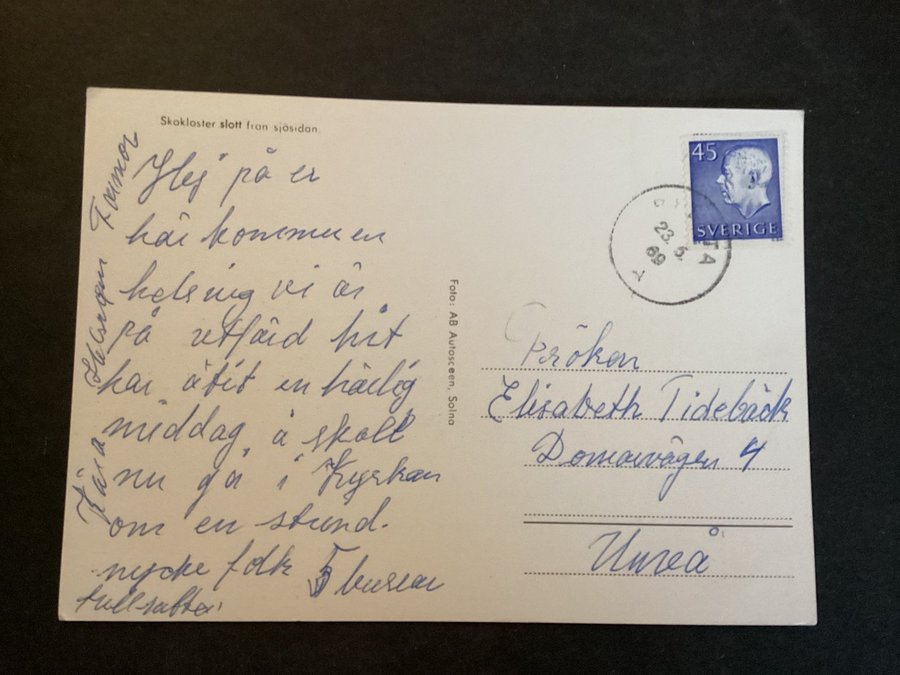 Skokloster slott från sjösidan.
Hej på er
här kommer en
helsnig vi är
på utfärd hit
har ätit en härlig
middag å skall
nu gå i Kyrkan
om en stund.
mycke folk 5 bussar
fullsatta.
Kära Hälsningar Farmor
Foto: AB Autosceen, Solna
45
SVERIGE
23.5.
69
Fröken
Elisabeth Tidebäck
Domarvägen 4
Umeå